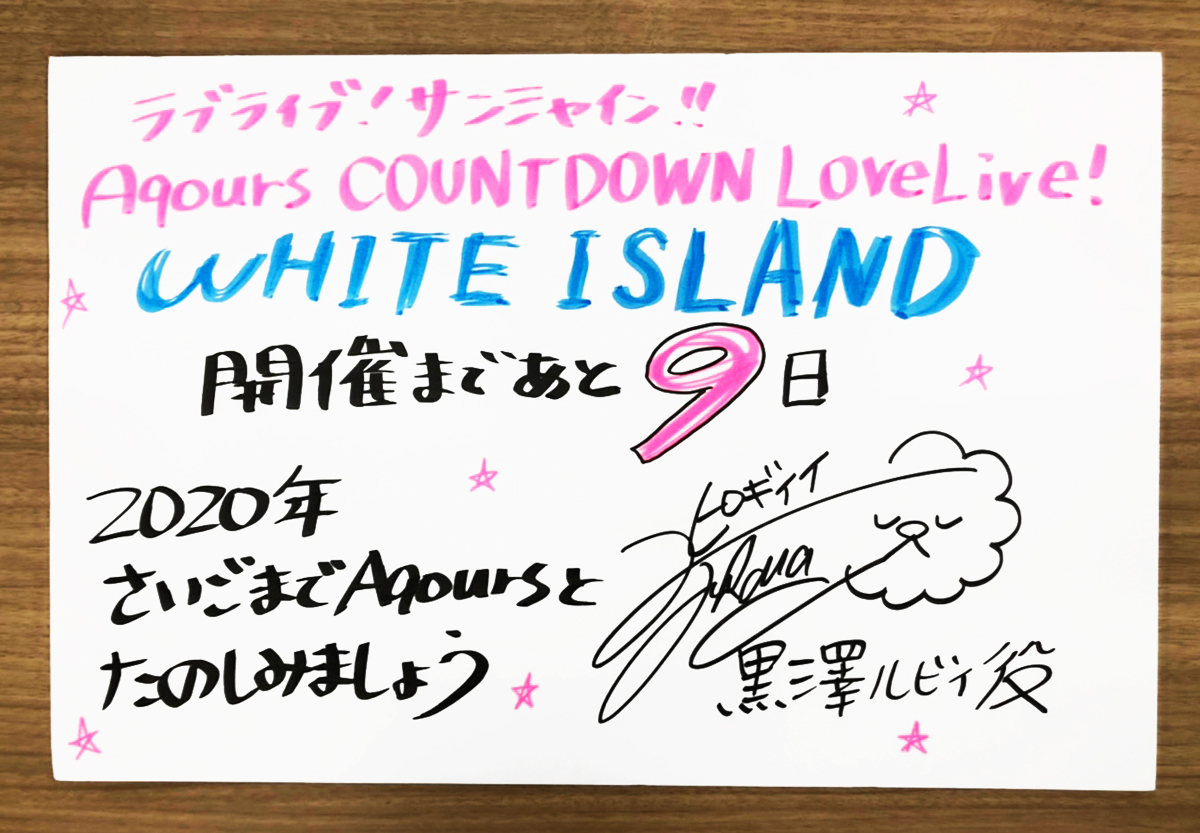 ラブライブ！サンシャイン!!
Aqours COUNTDOWN LoveLive!
WHITE ISLAND
開催まであと9日
2020年
さいごまでAqoursと
たのしみましょう
黒澤ルビィ役